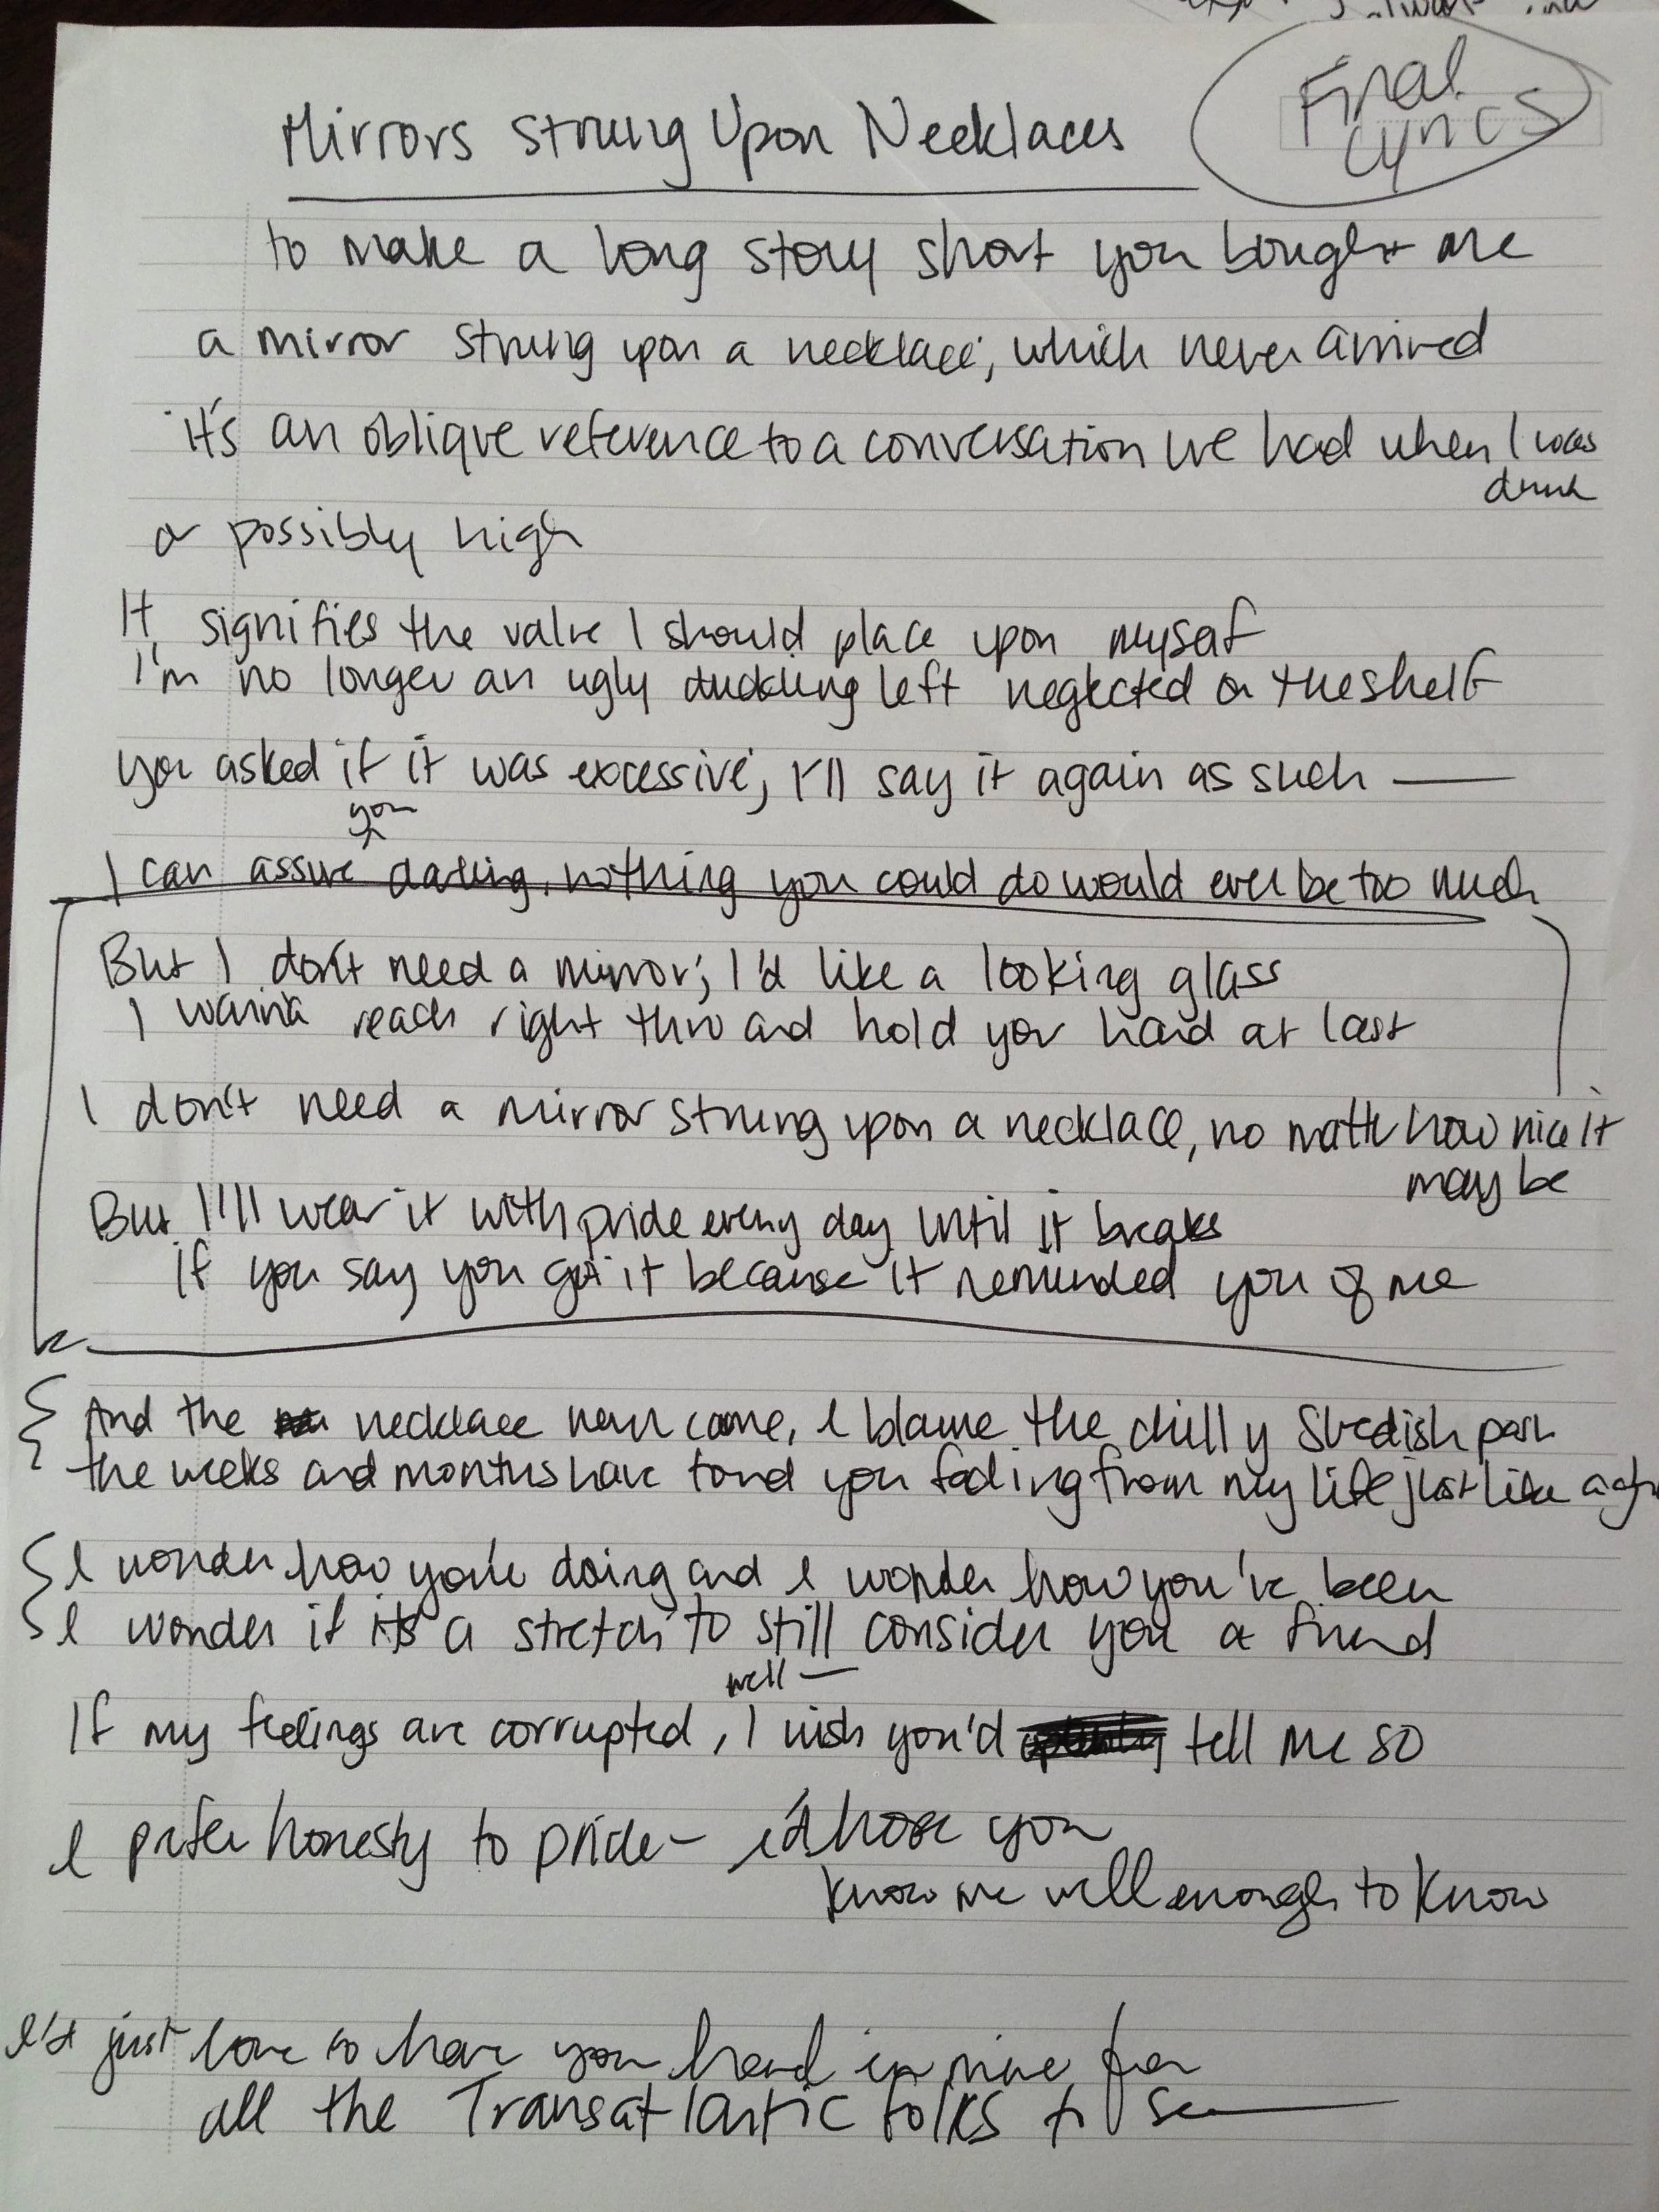 Final
Lyrics
Mirrors Strung Upon Necklaces
to make a long story short you bought me
a mirror strung upon a necklace, which never arrived
it's an oblique reference to a conversation we had when I was
drunk
or possibly high
It signifies the value I should place upon myself
I'm no longer an ugly duckling left neglected on the shelf
you asked if it was excessive, I'll say it again as such —
you
I can assure darling, nothing you could do would ever be too much
But I don't need a mirror; I'd like a looking glass
I wanna reach right thru and hold your hand at last
I don't need a mirror strung upon a necklace, no matter how nice it
may be
But I'll wear it with pride every day until it breaks
if you say you got it because it reminded you of me
And the necklace never came, I blame the chilly Swedish post
the weeks and months have found you fading from my life just like a
I wonder how you're doing and I wonder how you've been
I wonder if it's a stretch to still consider you a friend
well —
If my feelings are corrupted, I wish you'd tell me so
I prefer honesty to pride – I'd hope you
know me well enough to know
I'd just love to have your hand in mine for
all the Transatlantic folks to see —